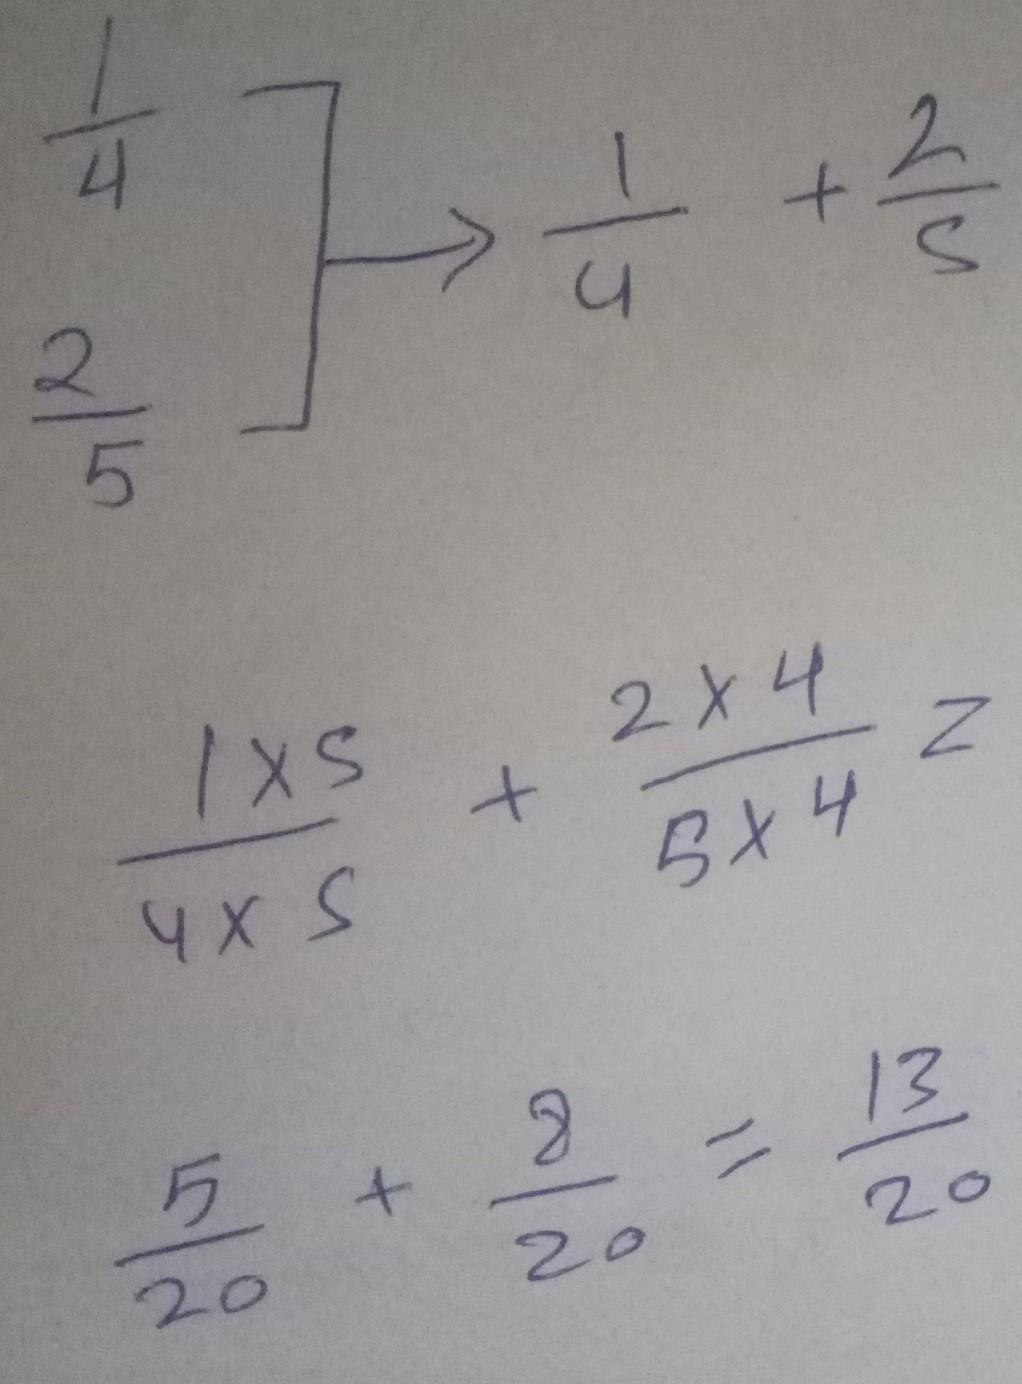 1/4 ] → 1/4 + 2/5
2/5
1×5/4×5 + 2×4/5×4 =
5/20 + 8/20 = 13/20